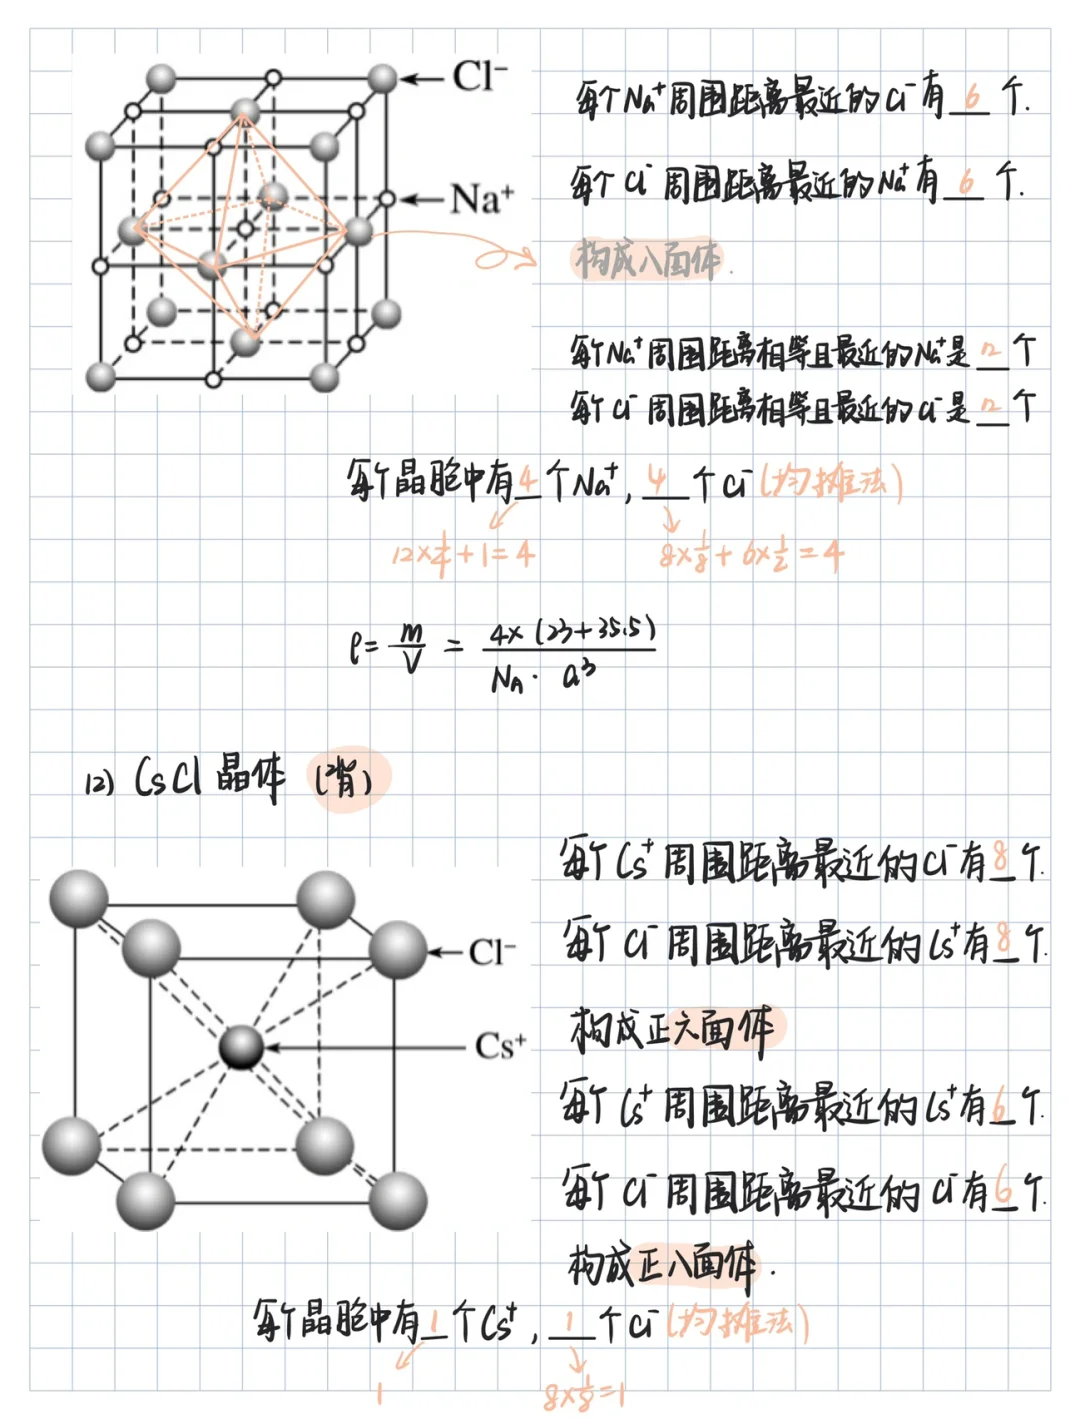 Cl⁻
每个Na⁺周围距离最近的Cl⁻有 6 个.
每个Cl⁻周围距离最近的Na⁺有 6 个.
Na⁺
构成八面体.
每个Na⁺周围距离相等且最近的Na⁺是 12 个
每个Cl⁻周围距离相等且最近的Cl⁻是 12 个
每个晶胞中有 4 个Na⁺, 4 个Cl⁻(均摊法)
12×1/4+1=4 8×1/8+6×1/2=4
ρ= m/V = 4×(23+35.5)/(N_A·a³)
(2) CsCl晶体 (背)
每个Cs⁺周围距离最近的Cl⁻有 8 个.
每个Cl⁻周围距离最近的Cs⁺有 8 个.
Cl⁻
构成正六面体
Cs⁺
每个Cs⁺周围距离最近的Cs⁺有 6 个.
每个Cl⁻周围距离最近的Cl⁻有 6 个.
构成正八面体.
每个晶胞中有 1 个Cs⁺, 1 个Cl⁻(均摊法)
1 8×1/8=1